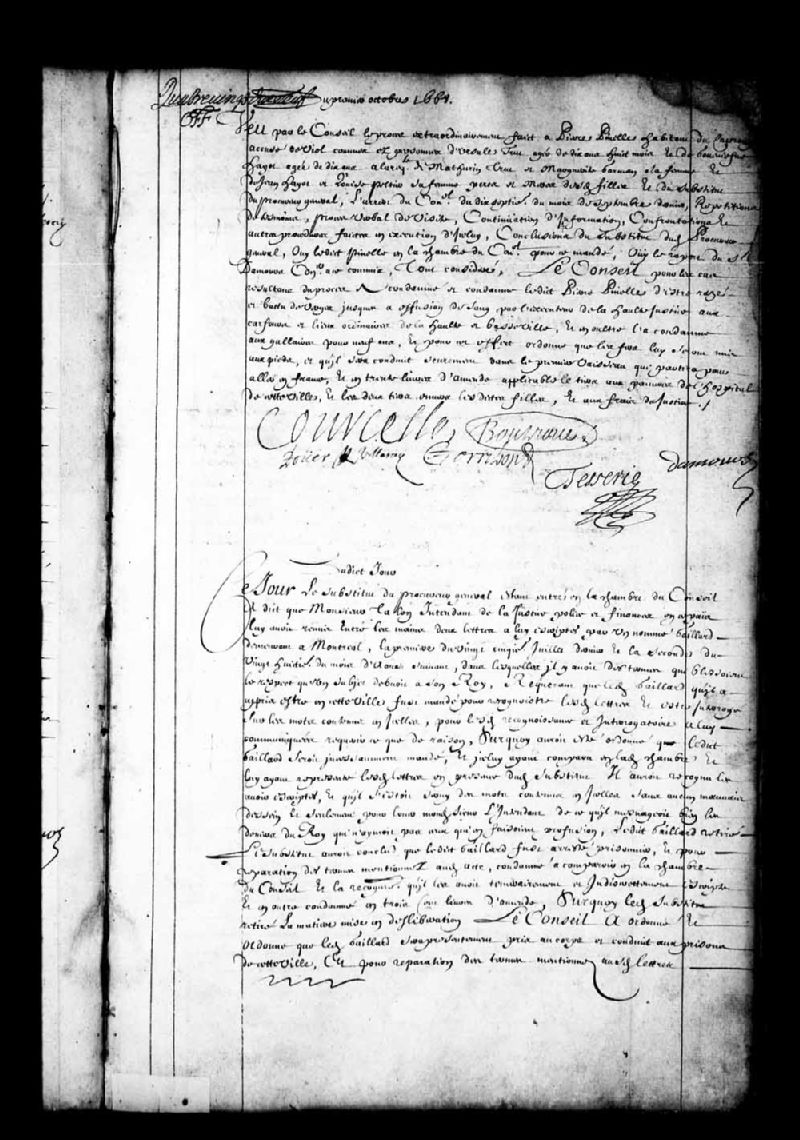 Du premier octobre 1669.
Veu par le Conseil le proces extraordinairement fait a Pierre Pinelle habitant du
accusé de viol commis es personnes d'Ursule Trut agée de dix ans huit mois et de
Hayot agée de dix ans a la req. de Mathurin Trut et Marguerite sa femme Et
de Jean Hayot et Louise Peltier sa femme peres et meres desd. filles Et du substitut
du procureur general, L'arrest du Con.el du dix septie. du mois de septembre dernier, Repetitions
de temoins, procez verbal de visite, Continuation d'Information, Confrontations Et
autres procedures faictes en execution d'iceluy, Conclusions du Substitut dud. Procureur
general, Ouy ledit Pinelle en la chambre du Con.el pour ce mandé, Ouy le raport du S.r
Damours Con.er a ce commis, Tout consideré, Le Conseil pour les cas
resultans du proces A condamné et condamne ledit Pierre Pinelle d'estre razé
et battu de verges jusques a effusion de sang par l'executeur de la haulte Justice aux
carfours et lieux ordinaires de la haulte et basse ville, Et en oultre l'a condamné
aux gallaires pour neuf ans, Et pour cet effect ordonne que les fers luy seront mis
aux pieds, et qu'il sera conduit seurement dans le premier vaisseau qui partira pour
aller en france, Et en trente livres d'amende applicables le tiers aux pauvres de l'hospital
de cette ville, Et les deux tiers envers lesdites filles, Et aux frais de Justice ./
Courcelle Bouteroue
Gorribon damours
Tesserie
Dudict Jour
Ce Jour Le substitut du procureur general estant entré en la chambre du Conseil
A dit que Monsieur Talon Intendant de la Justice police et finances en ce païs
luy avoir remis Entre les mains deux lettres a luy escriptes par un nommé baillard
demeurant a Montreal, la premiere du vingt cinq.e Juillet dernier Et la seconde du
vingt huitie. du mois d'Aoust suivant, dans lesquelles il y avoit des termes qui blessoient
le respect qu'un subjet debvoit a son Roy, Requerant que led. baillard qu'il a
appris estre en cette ville fust mandé pour recognoistre lesd. lettres Et estre Interrogé
sur les motz contenus en Icelles, pour lesd. recognoissance et Interrogatoire a luy
communiquées requerir ce que de raison, Surquoy auroit esté ordonné que ledit
baillard seroit incessamment mandé, Et iceluy ayant comparu en lad. chambre Et
luy ayant representé lesd. lettres en presence dud. substitut Il auroit recognu les
avoir escriptes, Et qu'il s'estoit servy des motz contenus en Icelles sans aucun mauvais
dessein Et seulement pour louer mond. sieur L'Intendant de ce qu'il mesnageoit bien les
deniers du Roy qui n'aymoit pas ceux qui en faisoient profusion, Ledit baillard retiré
Le substitut auroit conclud que ledit baillard fust arresté prisonnier, Et pour
reparation des termes mentionnez auxd. ecrs, condamné a comparoir en la chambre
du Conseil Et la recognoistre qu'il les avoit temerairement et Indiscrettement escripts
Et en outre condamné en trois Cens livres d'amende, Surquoy led. Substitut
retiré La matiere mise en deliberation Le Conseil A ordonné Et
ordonne que led. baillard sera presentement pris au corps et conduit aux prisons
de cette ville, Et pour reparation des termes mentionnez auxd. lettres